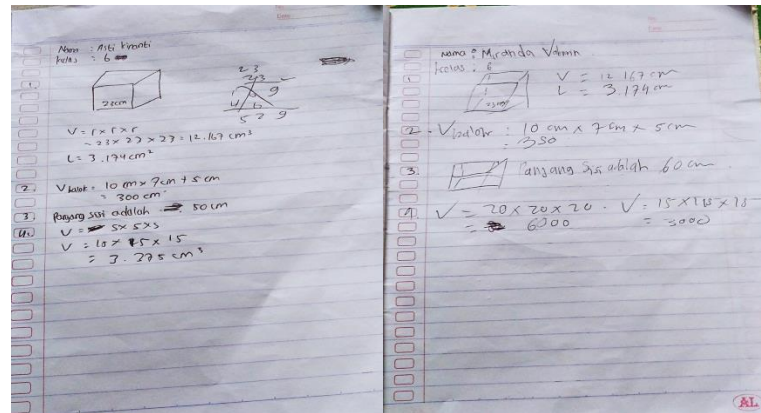 Nama : Asti Kinanti
Kelas : 6
1.
23 cm
23
23
9
5 2 9
V = r x r x r
= 23 x 23 x 23 = 12.167 cm³
L = 3.174 cm²
2. V balok = 10 m x 7 cm + 5 cm
= 300 cm
3. Panjang sisi adalah 50 cm
4. V = 5 x 5 x 5
V = 15 x 15 x 15
= 3.375 cm³
Nama : Miranda
Kelas : 6
1.
V = 12.167 cm
L = 3.174 cm
2. V balok : 10 cm x 7 cm x 5 cm
= 350
3. Panjang sisi adlah 60 cm.
4. V = 20 x 20 x 20 . V = 15 x 15 x 15
= 6000 = 3000
AL